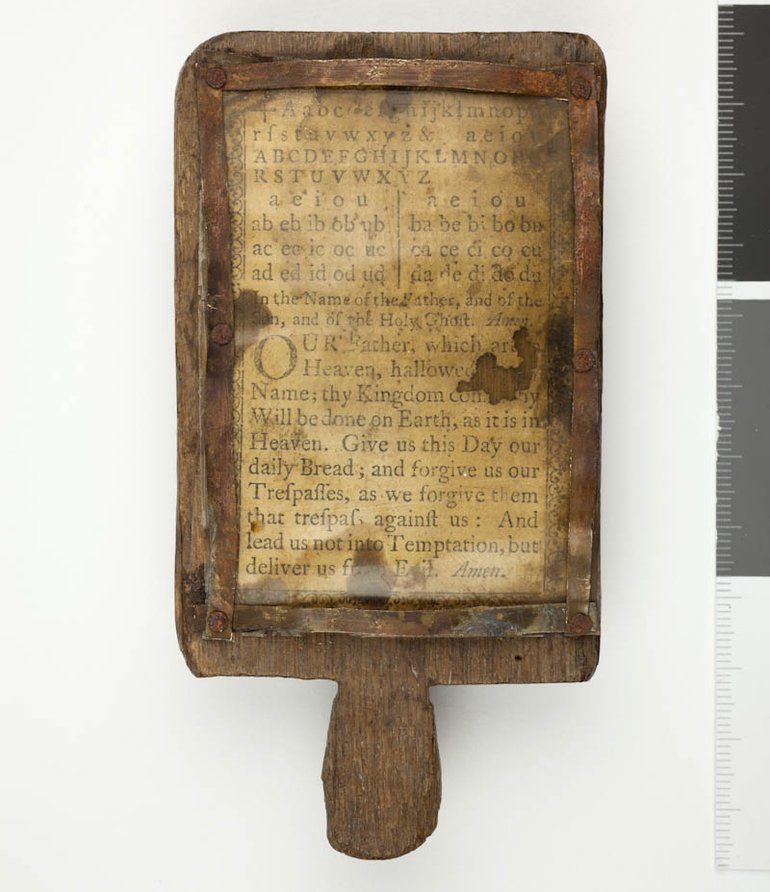 Aabc efghijklmnop
rſstuvwxyz& aeiou
ABCDEFGHIJKLMNOP
RSTUVWXYZ
a e i o u a e i o u
ab eb ib ob ub ba be bi bo bu
ac ec ic oc uc ca ce ci co cu
ad ed id od ud da de di do du
In the Name of the Father, and of the
Son, and of the Holy Ghoſt. Amen.
OUR Father, which art
Heaven, hallowed
Name; thy Kingdom
Will be done on Earth, as it is in
Heaven. Give us this Day our
daily Bread; and forgive us our
Treſpaſſes, as we forgive them
that treſpaſs againſt us: And
lead us not into Temptation, but
deliver us Evil. Amen.